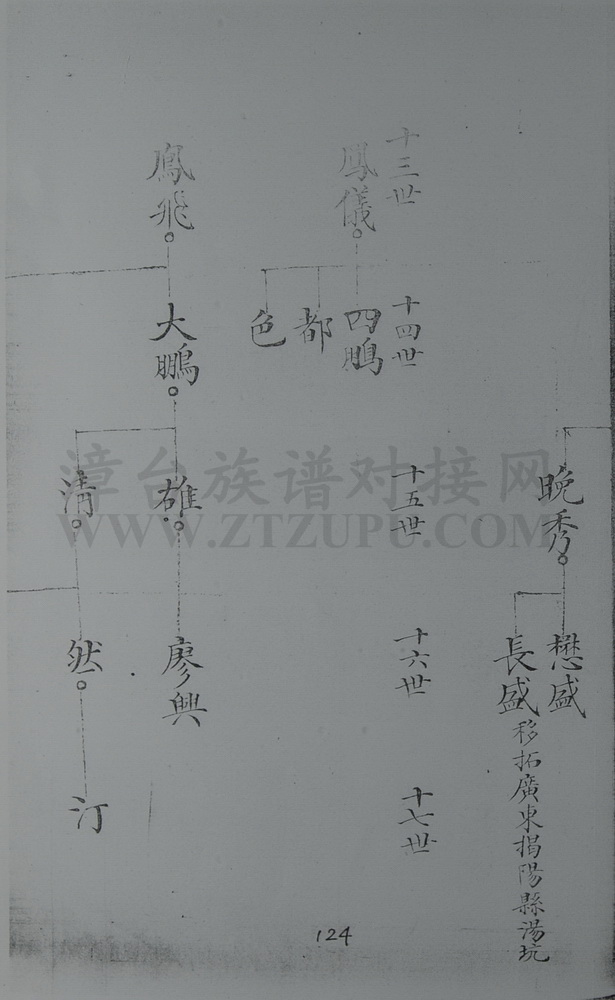 晚秀
懋盛
長盛移拓廣東揭陽縣湯坑
十三世
十四世
十五世
十六世
十七世
鳳儀
四鵬
都
色
鳳飛
大鵬
雄
廖興
清
然
汀
124
漳台族谱对接网
WWW.ZTZUPU.COM